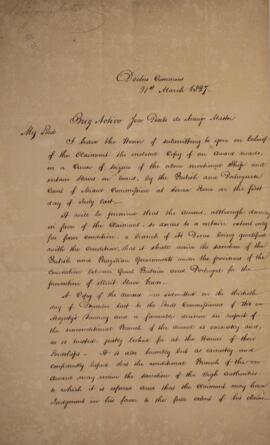 Doctors Commons
31st March 1827.
Brig Activo José Pinto de Araujo Master
My Lord
I have the Honor of submitting to you on behalf
of the Claimant the inclosed Copy of an Award made,
in a Cause of Seizure of the above mentioned Ship and
certain Slaves on board, by the British and Portuguese
Court of Mixed Commission at Sierra Leone on the first
day of July last.
It will be perceived that the Award, although done
in favor of the Claimant, is as to a certain extent only
free from condition, a branch of it being qualified
with the Condition, that it shall receive the sanction of the
British and Brazilian Governments under the provisions of the
Convention between Great Britain and Portugal for the
prevention of illicit Slave Trade.
A Copy of the Award was submitted on the thirtieth
day of December last to the Lords Commissioners of His
Majesty's Treasury and a favorable decision in respect of
the unconditional Branch of the Award is earnestly and,
as is trusted, justly looked for at the Hands of their
Lordships. It is also humbly but as earnestly and
confidently hoped that the conditional Branch of the
Award may receive the sanction of the High Authorities
to which it is referred and that the Claimant may have
Judgment in his favor to the full extent of his claim.